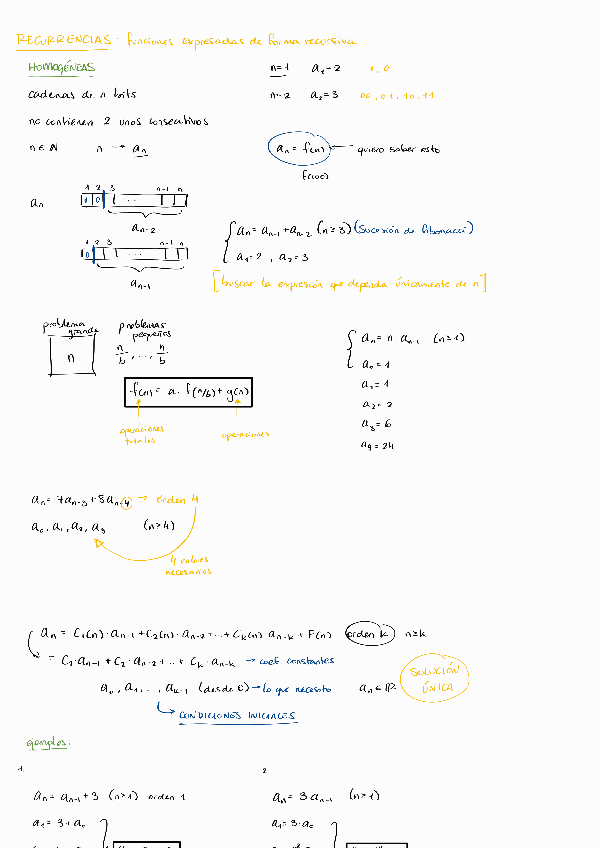 RECURRENCIAS: funciones expresadas de forma recursiva
HOMOGÉNEAS
n=1 a₁=2 1, 0
cadenas de n bits
n=2 a₂=3 00, 01, 10, 11
no contienen 2 unos consecutivos
n∈ℕ n → aₙ
aₙ = f(n) ← quiero saber esto
f(100)
aₙ
1 2 3 n-1 n
1 0 ...
aₙ₋₂
1 2 3 n-1 n
0 ...
aₙ₋₁
aₙ = aₙ₋₁ + aₙ₋₂ (n≥3) (Sucesión de Fibonacci)
a₁=2, a₂=3
[buscar la expresión que dependa únicamente de n]
problema grande
n
problemas pequeños
n/b, ..., n/b
f(n) = a · f(n/b) + g(n)
operaciones totales
operaciones
aₙ = n aₙ₋₁ (n≥1)
a₀=1
a₁=1
a₂=2
a₃=6
a₄=24
aₙ = 7aₙ₋₃ + 8aₙ₋₄ → orden 4
a₀, a₁, a₂, a₃ (n≥4)
4 valores necesarios
aₙ = C₁(n)·aₙ₋₁ + C₂(n)·aₙ₋₂ + ... + Cₖ(n) aₙ₋ₖ + F(n) orden k n≥k
= C₁·aₙ₋₁ + C₂·aₙ₋₂ + ... + Cₖ·aₙ₋ₖ → coef. constantes
a₀, a₁, ..., aₖ₋₁ (desde 0) → lo que necesito aₙ∈ℝ
SOLUCIÓN ÚNICA
↳ CONDICIONES INICIALES
ejemplos:
1.
aₙ = aₙ₋₁ + 3 (n≥1) orden 1
a₁ = 3 + a₀
2
aₙ = 3aₙ₋₁ (n≥1)
a₁ = 3·a₀